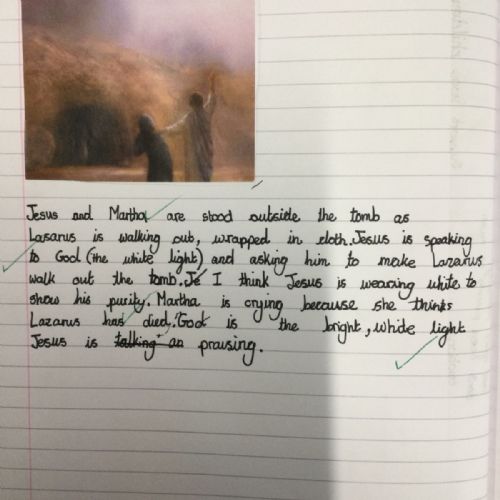 Jesus and Martha are stood outside the tomb as
Lasarus is walking out, wrapped in cloth. Jesus is speaking
to God (the white light) and asking him to make Lazarus
walk out the tomb. Je I think Jesus is wearing white to
show his purity. Martha is crying because she thinks
Lazarus has died. God is the bright, white light
Jesus is talking an praising.